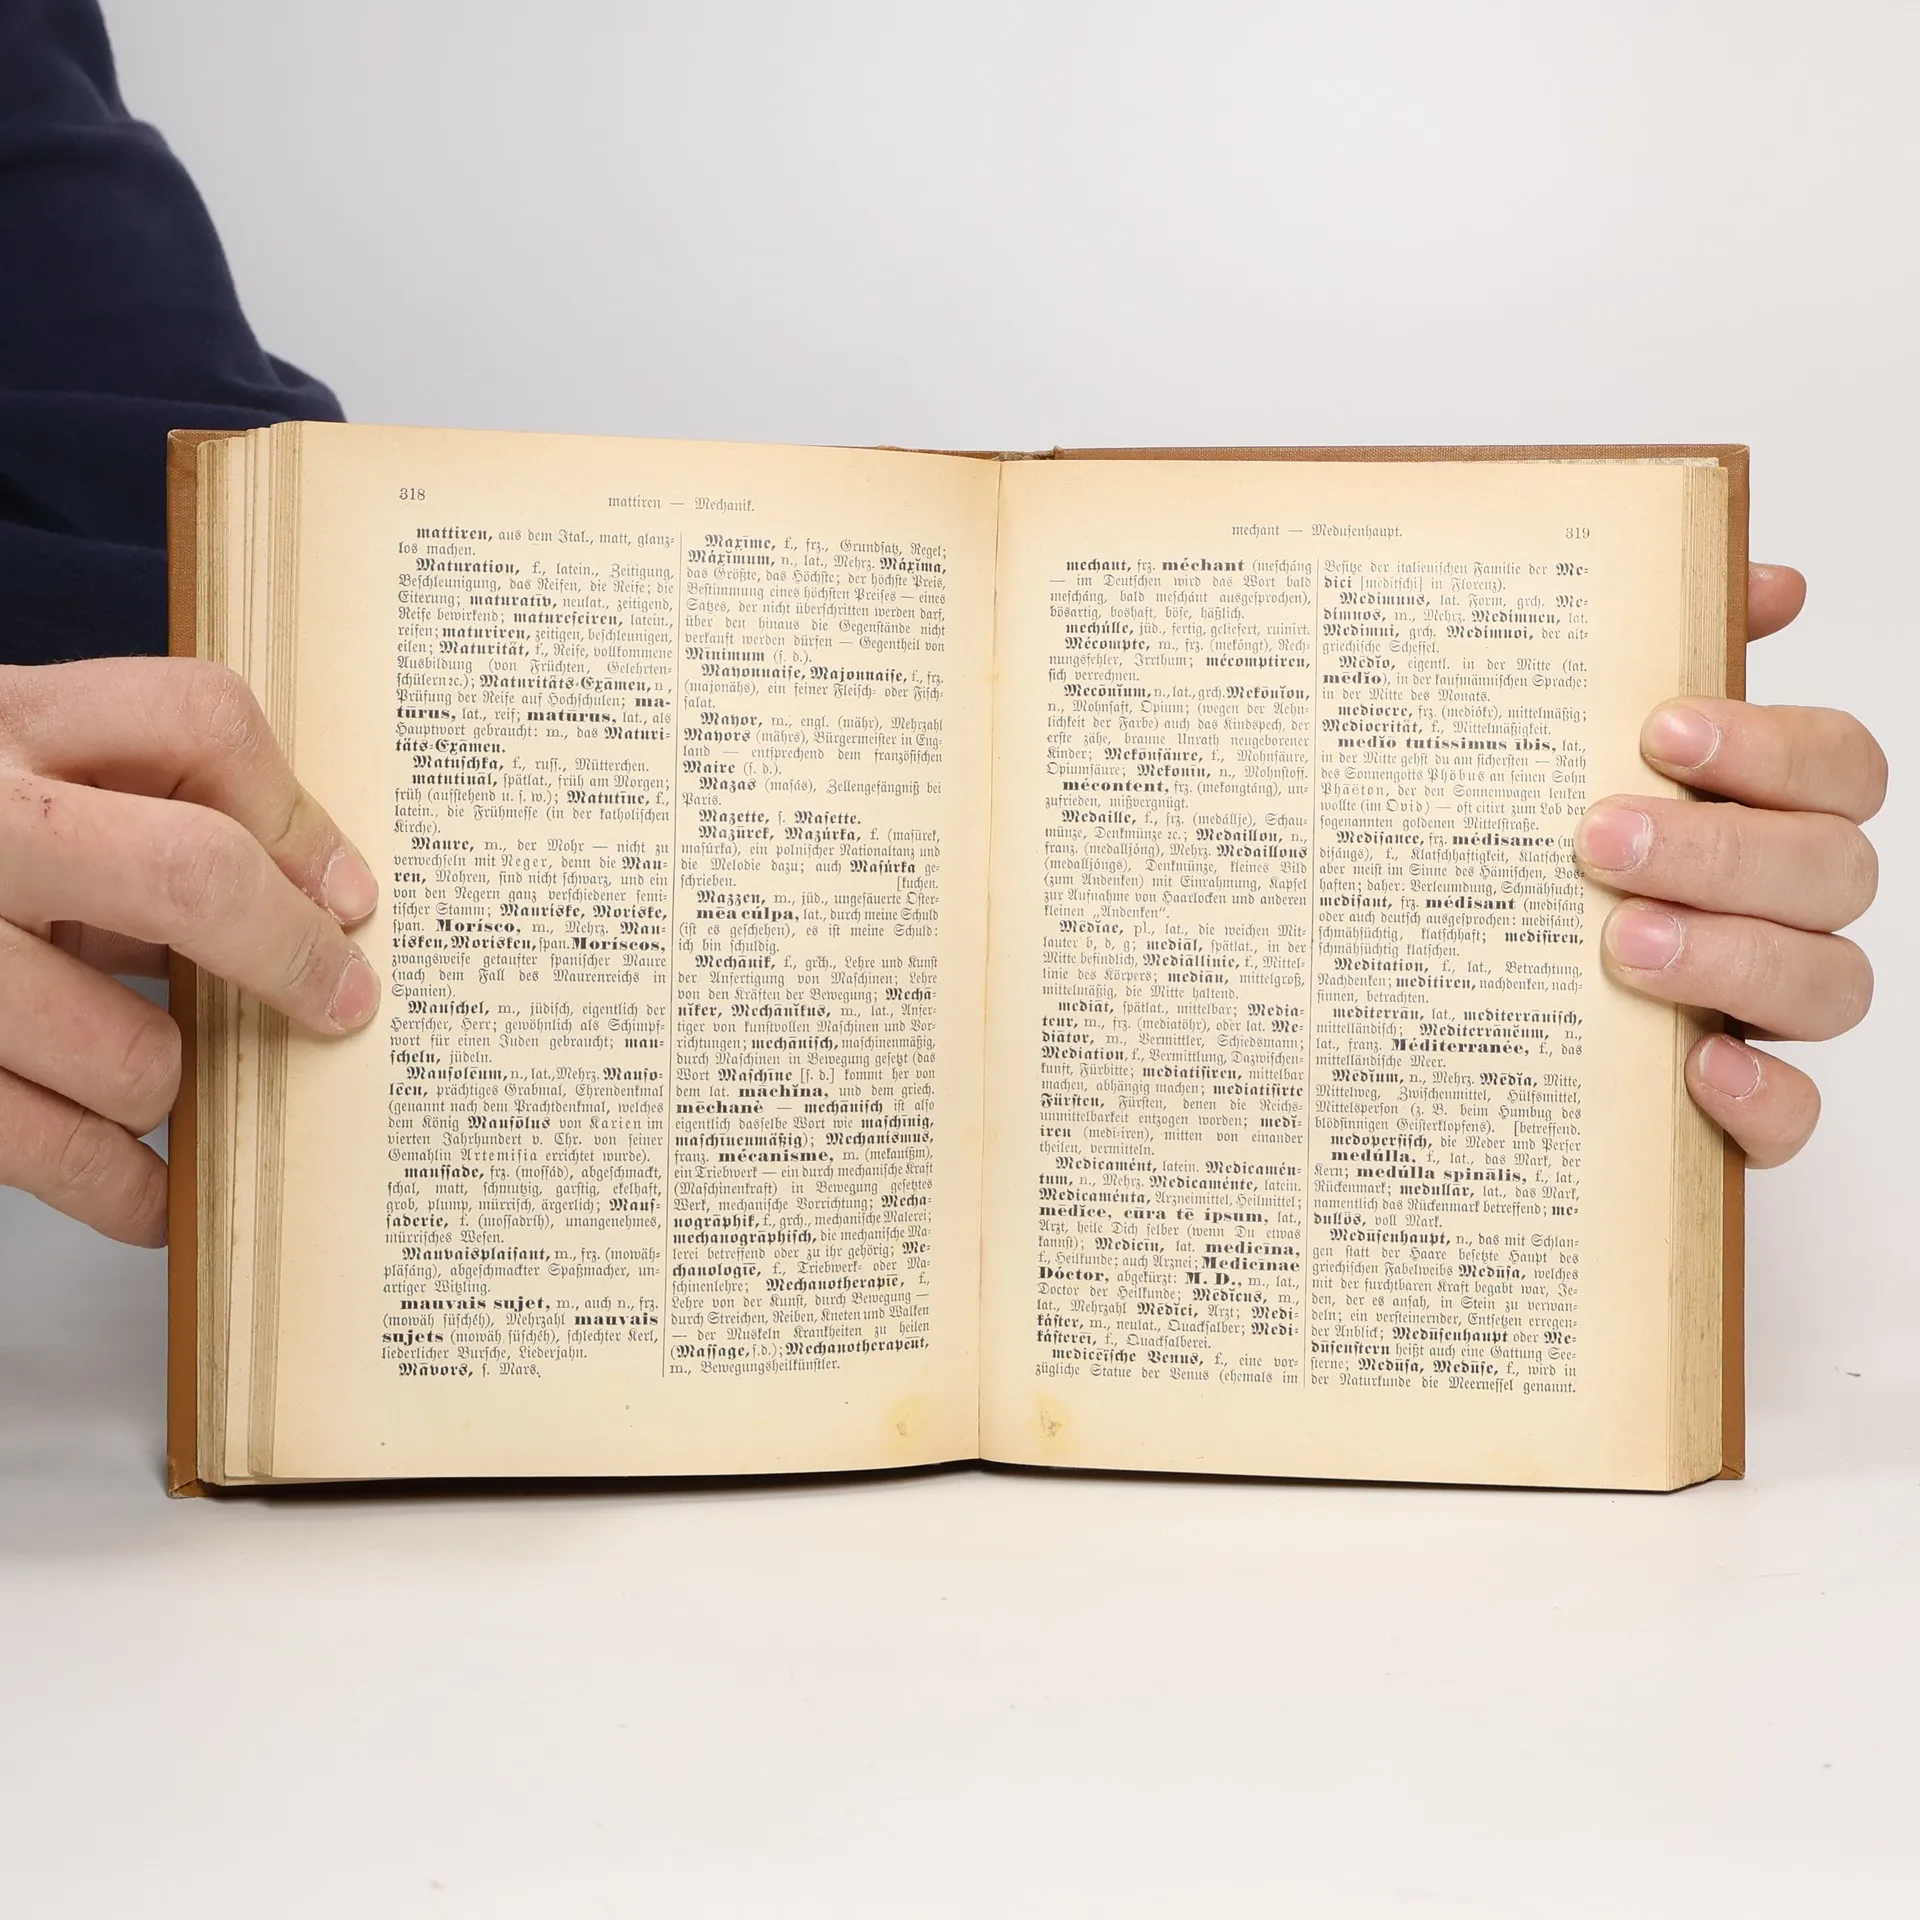 318
mattiren — Mechanik.
mattiren, aus dem Ital., matt, glanz-
los machen.
Maturation, f., latein., Zeitigung,
Beschleunigung, das Reifen, die Reife; die
Eiterung; maturatīv, neulat., zeitigend,
Reife bewirkend; maturesciren, latein.,
reifen; maturiren, zeitigen, beschleunigen,
eilen; Maturität, f., Reife, vollkommene
Ausbildung (von Früchten, Gelehrten-
schülern ꝛc.); Maturitäts-Exāmen, n.,
Prüfung der Reife auf Hochschulen; ma-
tūrus, lat., reif; matūrus, lat., als
Hauptwort gebraucht: m., das Maturi-
täts-Exāmen.
Matuschka, f., russ., Mütterchen.
matutināl, spätlat., früh am Morgen;
früh (aufstehend u. s. w.); Matutīne, f.,
latein., die Frühmesse (in der katholischen
Kirche).
Maure, m., der Mohr — nicht zu
verwechseln mit Neger, denn die Mau-
ren, Mohren, sind nicht schwarz, und ein
von den Negern ganz verschiedener semi-
tischer Stamm; Mauríske, Moríske,
span. Morísco, m., Mehrz. Mau-
rísken, Morísken, span. Moríscos,
zwangsweise getaufter spanischer Maure
(nach dem Fall des Maurenreichs in
Spanien).
Mauschel, m., jüdisch, eigentlich der
Herrscher, Herr; gewöhnlich als Schimpf-
wort für einen Juden gebraucht; mau-
scheln, jüdeln.
Mausolēum, n., lat., Mehrz. Mauso-
lēen, prächtiges Grabmal, Ehrendenkmal
(genannt nach dem Prachtdenkmal, welches
dem König Mausōlus von Karien im
vierten Jahrhundert v. Chr. von seiner
Gemahlin Artemisia errichtet wurde).
maussade, frz. (mossád), abgeschmackt,
schal, matt, schmutzig, garstig, ekelhaft,
grob, plump, mürrisch, ärgerlich; Maus-
saderie, f. (mossadríh), unangenehmes,
mürrisches Wesen.
Mauvaisplaisant, m., frz. (mowäh-
pläsáng), abgeschmackter Spaßmacher, un-
artiger Witzling.
mauvais sujet, m., auch n., frz.
(mowäh süschéh), Mehrzahl mauvais
sujets (mowäh süschéh), schlechter Kerl,
liederlicher Bursche, Liederjahn.
Māvors, s. Mars.
Maxīme, f., frz., Grundsatz, Regel;
Máxĭmum, n., lat., Mehrz. Máxĭma,
das Größte, das Höchste; der höchste Preis,
Bestimmung eines höchsten Preises — eines
Satzes, der nicht überschritten werden darf,
über den hinaus die Gegenstände nicht
verkauft werden dürfen — Gegentheil von
Mĭnimum (s. d.).
Mayonnaise, Majonnaise, f., frz.
(majonähs), ein feiner Fleisch- oder Fisch-
salat.
Mayor, m., engl. (mähr), Mehrzahl
Mayors (mährs), Bürgermeister in Eng-
land — entsprechend dem französischen
Maire (s. d.).
Mazas (masás), Zellengefängniß bei
Paris.
Mazette, s. Masette.
Mazūrek, Mazúrka, f. (masūrek,
masúrka), ein polnischer Nationaltanz und
die Melodie dazu; auch Masúrka ge-
schrieben. [kuchen.
Mazzen, m., jüd., ungesäuerte Oster-
mēa cúlpa, lat., durch meine Schuld
(ist es geschehen), es ist meine Schuld:
ich bin schuldig.
Mechānik, f., grch., Lehre und Kunst
der Anfertigung von Maschinen; Lehre
von den Kräften der Bewegung; Mechā-
niker, Mechānĭkus, m., lat., Anfer-
tiger von kunstvollen Maschinen und Vor-
richtungen; mechānisch, maschinenmäßig,
durch Maschinen in Bewegung gesetzt (das
Wort Maschīne [s. d.] kommt her von
dem lat. māchĭna, und dem griech.
mēchanè — mechānisch ist also
eigentlich dasselbe Wort wie maschīnig,
maschīnenmäßig); Mechanísmus,
franz. mécanisme, m. (mekanißm),
ein Triebwerk — ein durch mechanische Kraft
(Maschinenkraft) in Bewegung gesetztes
Werk, mechanische Vorrichtung; Mecha-
nográphik, f., grch., mechanische Malerei;
mechanogrāphisch, die mechanische Ma-
lerei betreffend oder zu ihr gehörig; Me-
chanologīe, f., Triebwerk- oder Ma-
schinenlehre; Mechanotherapīe, f.,
Lehre von der Kunst, durch Bewegung —
durch Streichen, Reiben, Kneten und Walken
— der Muskeln Krankheiten zu heilen
(Massage, s. d.); Mechanotherapeút,
m., Bewegungsheilkünstler.
mechant — Medusenhaupt.
319
mechant, frz. méchant (mescháng
— im Deutschen wird das Wort bald
mescháng, bald meschánt ausgesprochen),
bösartig, boshaft, böse, häßlich.
mechúlle, jüd., fertig, geliefert, ruinirt.
Mécompte, m., frz. (mekóngt), Rech-
nungsfehler, Irrthum; mécomptiren,
sich verrechnen.
Mecōnĭum, n., lat., grch. Mekōnĭon,
n., Mohnsaft, Opium; (wegen der Aehn-
lichkeit der Farbe) auch das Kindspech, der
erste zähe, braune Unrath neugeborener
Kinder; Mekōnsäure, f., Mohnsäure,
Opiumsäure; Mekonīn, n., Mohnstoff.
mécontent, frz. (mekongtáng), un-
zufrieden, mißvergnügt.
Medaille, f., frz. (medállje), Schau-
münze, Denkmünze ꝛc.; Medaillon, n.,
franz. (medalljóng), Mehrz. Medaillons
(medalljóngs), Denkmünze, kleines Bild
(zum Andenken) mit Einrahmung, Kapsel
zur Aufnahme von Haarlocken und anderen
kleinen „Andenken“.
Mēdiae, pl., lat., die weichen Mit-
lauter b, d, g; mediāl, spätlat., in der
Mitte befindlich, Mediāllinie, f., Mittel-
linie des Körpers; mediān, mittelgroß,
mittelmäßig, die Mitte haltend.
mediāt, spätlat., mittelbar; Media-
teur, m., frz. (mediatöhr), oder lat. Me-
diātor, m., Vermittler, Schiedsmann;
Mediation, f., Vermittlung, Dazwischen-
kunft, Fürbitte; mediatisiren, mittelbar
machen, abhängig machen; mediatisirte
Fürsten, Fürsten, denen die Reichs-
unmittelbarkeit entzogen worden; medi-
iren (medi-iren), mitten von einander
theilen, vermitteln.
Medicamént, latein. Medicamén-
tum, n., Mehrz. Medicaménte, latein.
Medicaménta, Arzneimittel, Heilmittel;
mēdĭce, cūra tē ípsum, lat.,
Arzt, heile Dich selber (wenn Du etwas
kannst); Medicīn, lat. medicīna,
f., Heilkunde; auch Arznei; Medicīnae
Dóctor, abgekürzt: M. D., m., lat.,
Doctor der Heilkunde; Mēdĭcus, m.,
lat., Mehrzahl Mēdĭci, Arzt; Medi-
káster, m., neulat., Quacksalber; Medi-
kasterēi, f., Quacksalberei.
medicēische Venus, f., eine vor-
zügliche Statue der Venus (ehemals im
Besitze der italienischen Familie der Mé-
dici [meditschi] in Florenz).
Medimnus, lat. Form, grch. Me-
dímnos, m., Mehrz. Medímnen, lat.
Medimni, grch. Medimnoi, der alt-
griechische Scheffel.
Mĕdĭo, eigentl. in der Mitte (lat.
mēdĭo), in der kaufmännischen Sprache:
in der Mitte des Monats.
mediocre, frz. (mediókr), mittelmäßig;
Mediocrität, f., Mittelmäßigkeit.
medĭō tutíssimus ībis, lat.,
in der Mitte gehst du am sichersten — Rath
des Sonnengotts Phöbus an seinen Sohn
Phaëton, der den Sonnenwagen lenken
wollte (im Ovid) — oft citirt zum Lob der
sogenannten goldenen Mittelstraße.
Medisance, frz. médisance (m
disángs), f., Klatschhaftigkeit, Klatschere
aber meist im Sinne des Hämischen, Bos-
haften; daher: Verleumdung, Schmähsucht;
medisant, frz. médisant (medisáng
oder auch deutsch ausgesprochen: medisánt),
schmähsüchtig, klatschhaft; medisiren,
schmähsüchtig klatschen.
Meditation, f., lat., Betrachtung,
Nachdenken; meditiren, nachdenken, nach-
sinnen, betrachten.
mediterrān, lat., mediterrānisch,
mittelländisch; Mediterrānĕum, n.,
lat., franz. Méditerranée, f., das
mittelländische Meer.
Mēdĭum, n., Mehrz. Mēdĭa, Mitte,
Mittelweg, Zwischenmittel, Hülfsmittel,
Mittelsperson (z. B. beim Humbug des
blödsinnigen Geisterklopfens). [betreffend.
medopersisch, die Meder und Perser
medúlla, f., lat., das Mark, der
Kern; medúlla spinālis, f., lat.,
Rückenmark; medullār, lat., das Mark,
namentlich das Rückenmark betreffend; me-
dullös, voll Mark.
Medūsenhaupt, n., das mit Schlan-
gen statt der Haare besetzte Haupt des
griechischen Fabelweibs Medūsa, welches
mit der furchtbaren Kraft begabt war, Je-
den, der es ansah, in Stein zu verwan-
deln; ein versteinernder, Entsetzen erregen-
der Anblick; Medūsenhaupt oder Me-
dūsenstern heißt auch eine Gattung See-
sterne; Medūsa, Medūse, f., wird in
der Naturkunde die Meernessel genannt.